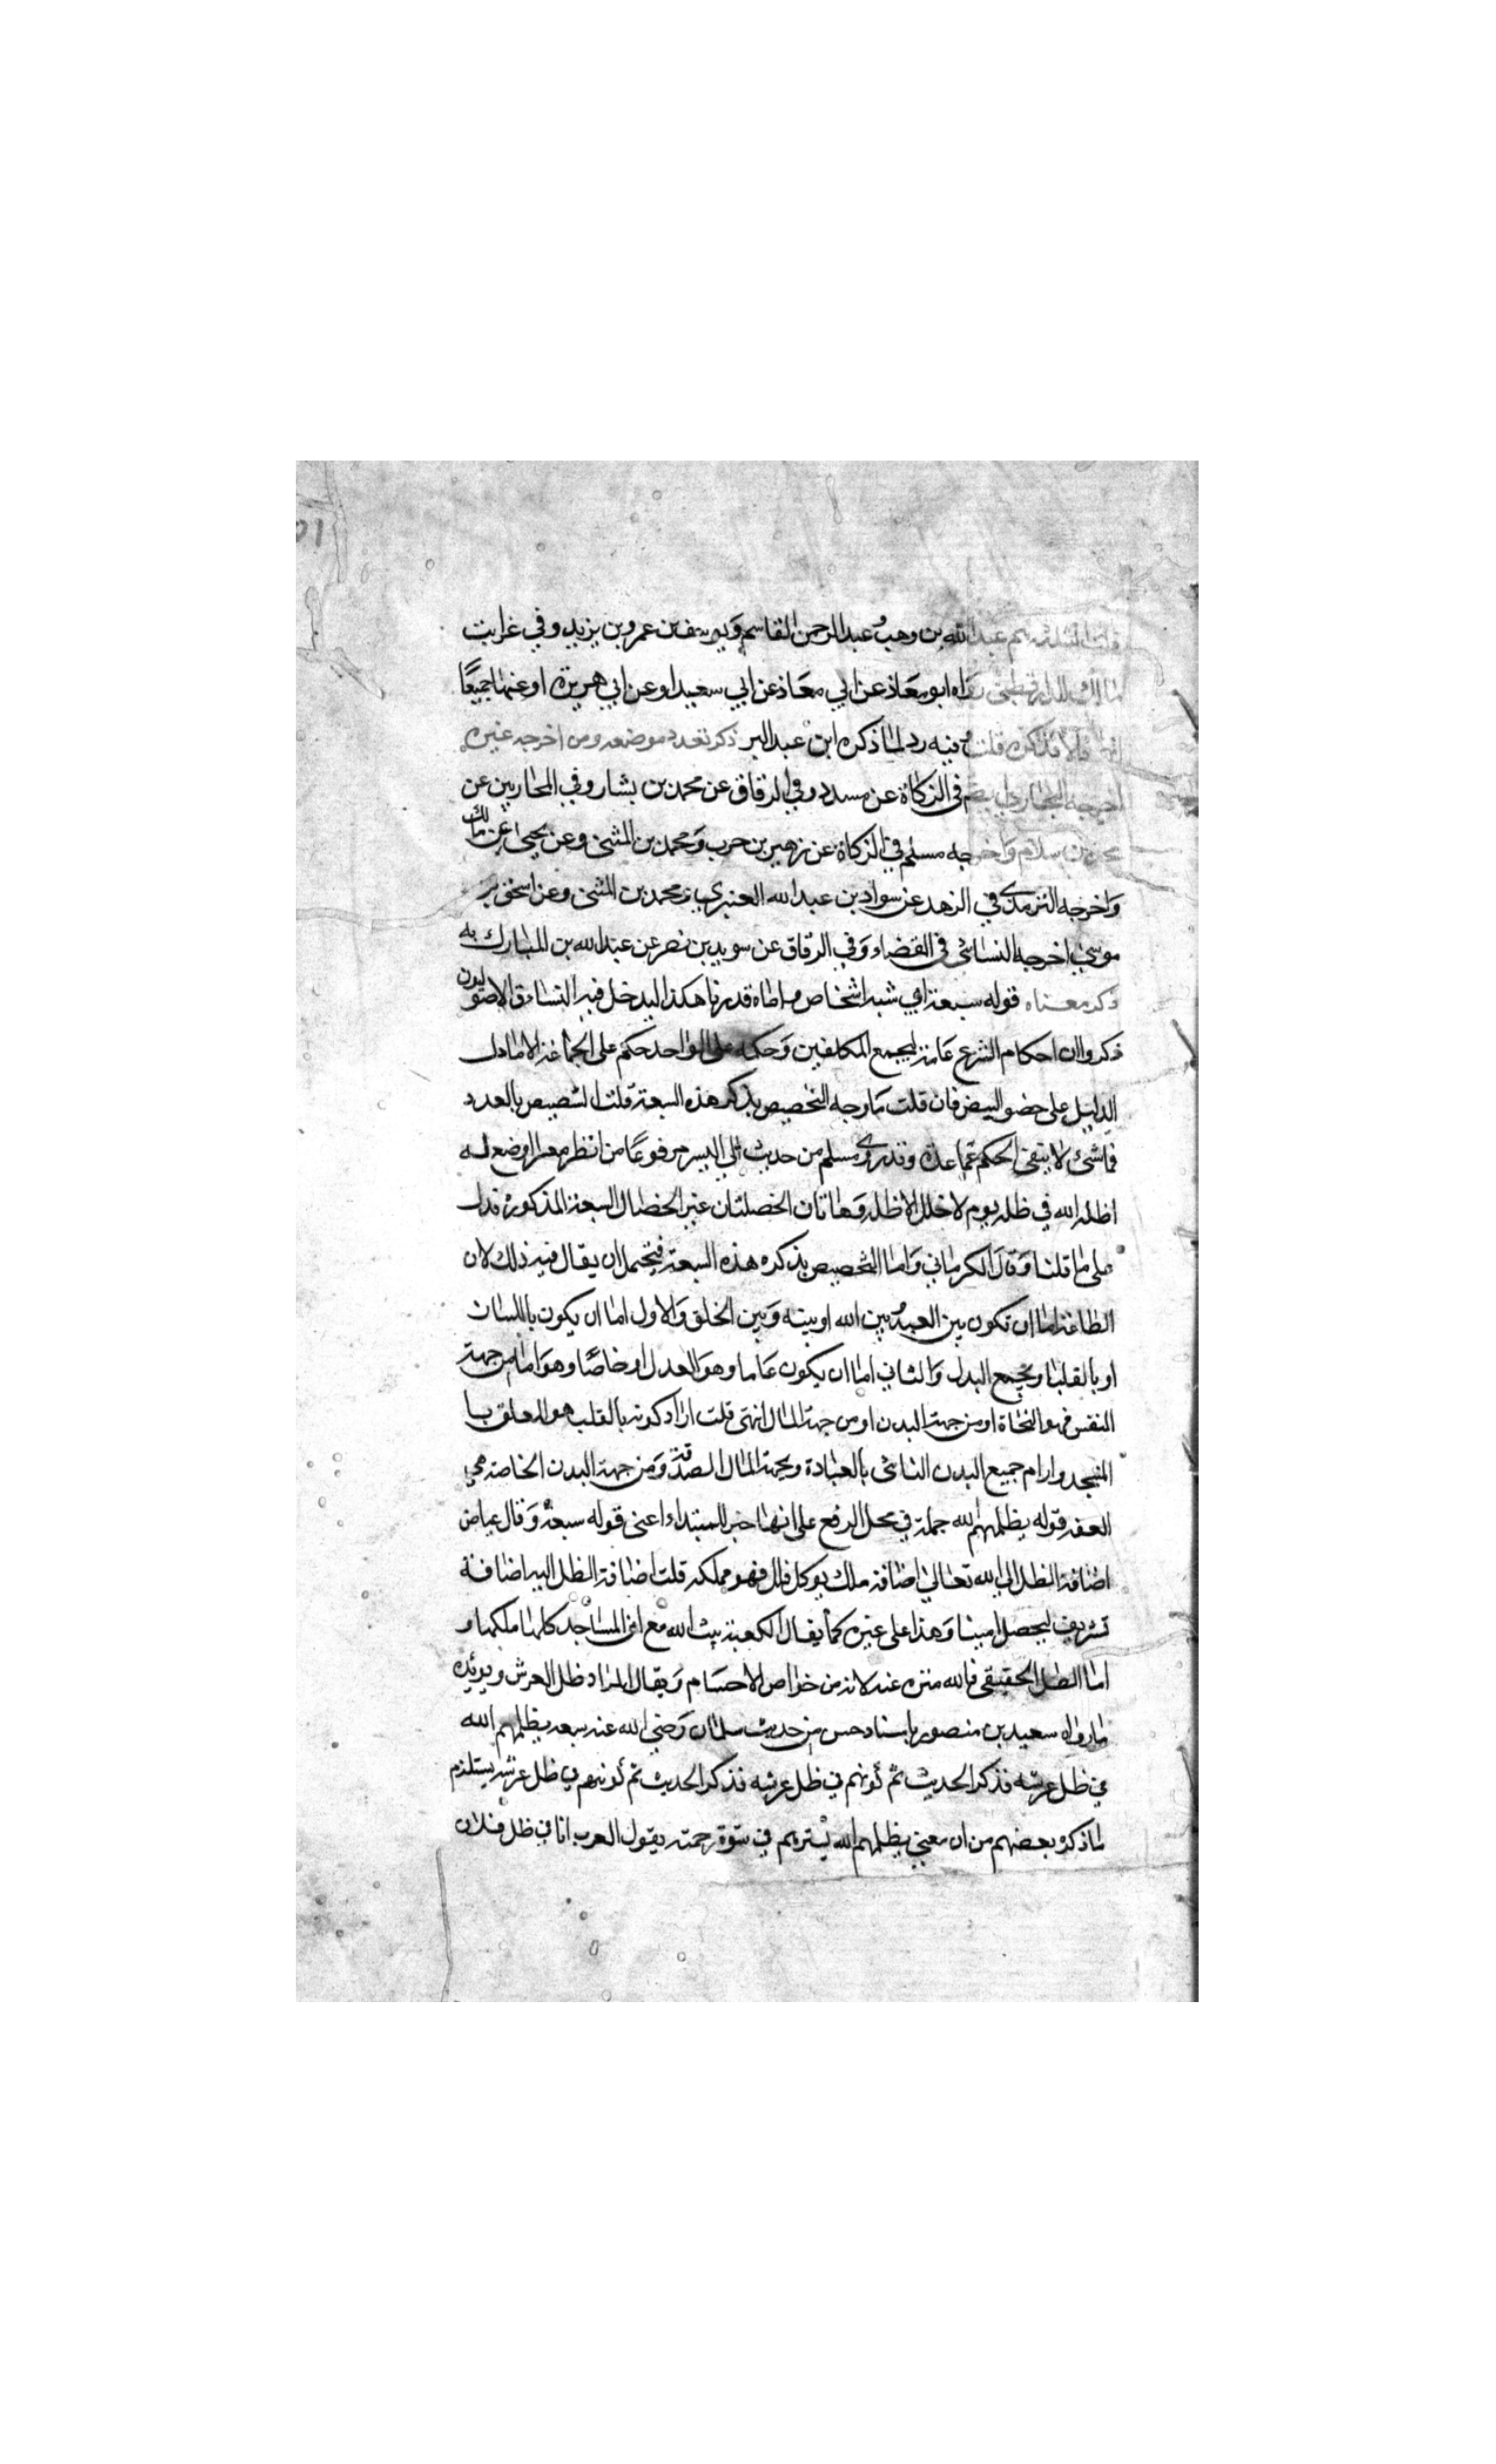 قلت الثلاثة هم عبد الله بن وهب وعبد الرحمن القاسم ويوسف بن عمرو بن يزيد وفي غرايب
مالك للدارقطني رواه ابو معاذ عن ابي معاذ عن ابي سعيد او عن ابي هريرة او عنهما جميعًا
انهما قالا فذكره قلت فيه رد لما ذكره ابن عبد البر ذكر تعدد موضعه ومن اخرجه غيره
اخرجه البخاري ايضا في الزكاة عن مسدد وفي الرقاق عن محمد بن بشار وفي المحاربين عن
محمد بن سلام واخرجه مسلم في الزكاة عن زهير بن حرب ومحمد بن المثنى وعن يحيى عن مالك
واخرجه الترمذي في الزهد عن سواد بن عبد الله العنبري ومحمد بن المثنى وعن اسحق بن
موسى اخرجه النسائي في القضاء وفي الرقاق عن سويد بن نصر عن عبد الله بن المبارك به
ذكر معناه قوله سبعة اي اشخاص هكذا ليدخل فيه النساء والاصوليون
ذكروا ان احكام الشرع عامة لجميع المكلفين وحكمه على الواحد حكم على الجماعة الا ما دل
الدليل على البعض فان قلت ما وجه التخصيص بذكر هذه السبعة قلت التنصيص بالعدد
في شئ لا ينفي الحكم عما عداه وقد روى مسلم من حديث ابي اليسر مرفوعًا من انظر معسرا او وضع له
اظله الله في ظله يوم لا ظل الا ظله وهاتان الخصلتان غير الخصال السبعة المذكورة فدل
على ما قلنا وقال الكرماني واما التخصيص بذكره هذه السبعة فيحتمل ان يقال فيه ذلك لان
الطاعة اما ان تكون بين العبد وبين الله او بينه وبين الخلق والاول اما ان يكون باللسان
او بالقلب او بجميع البدن والثاني اما ان يكون عاما وهو العدل او خاصًا وهو اما من جهة
النفس فهو التحاة او من جهة البدن او من جهة المال انتهى قلت اراد كونه بالقلب هو المعلق با
المسجد وارام جميع البدن الناشئ بالعبادة وبجهة المال الصدقة ومن جهة البدن الخاصة هي
العفة قوله يظلهم الله جملة في محل الرفع على انها خبر للمبتداء اعني قوله سبعة وقال عياض
اضافة الظل الى الله تعالى اضافة ملك وكل ظل فهو مملكه قلت اضافة الظل اليه اضافة
تشريف ليحصل امتيا وهذا على غيره كما يقال الكعبة بيت الله مع ان المساجد كلها ملكها و
اما الظل الحقيقي فالله منزه عنه لانه من خواص الاجسام ويقال المراد ظل العرش ويؤيده
ما رواه سعيد بن منصور باسناد حسن من حديث سلمان رضي الله عنه سبعه يظلهم الله
في ظل عرشه فذكر الحديث ثم كونهم في ظل عرشه فذكر الحديث ثم كونهم في ظل عرشه يستلزم
ما ذكره بعضهم من ان معنى يظلهم الله يسترهم في سترة رحمته يقول العرب انا في ظل فلان